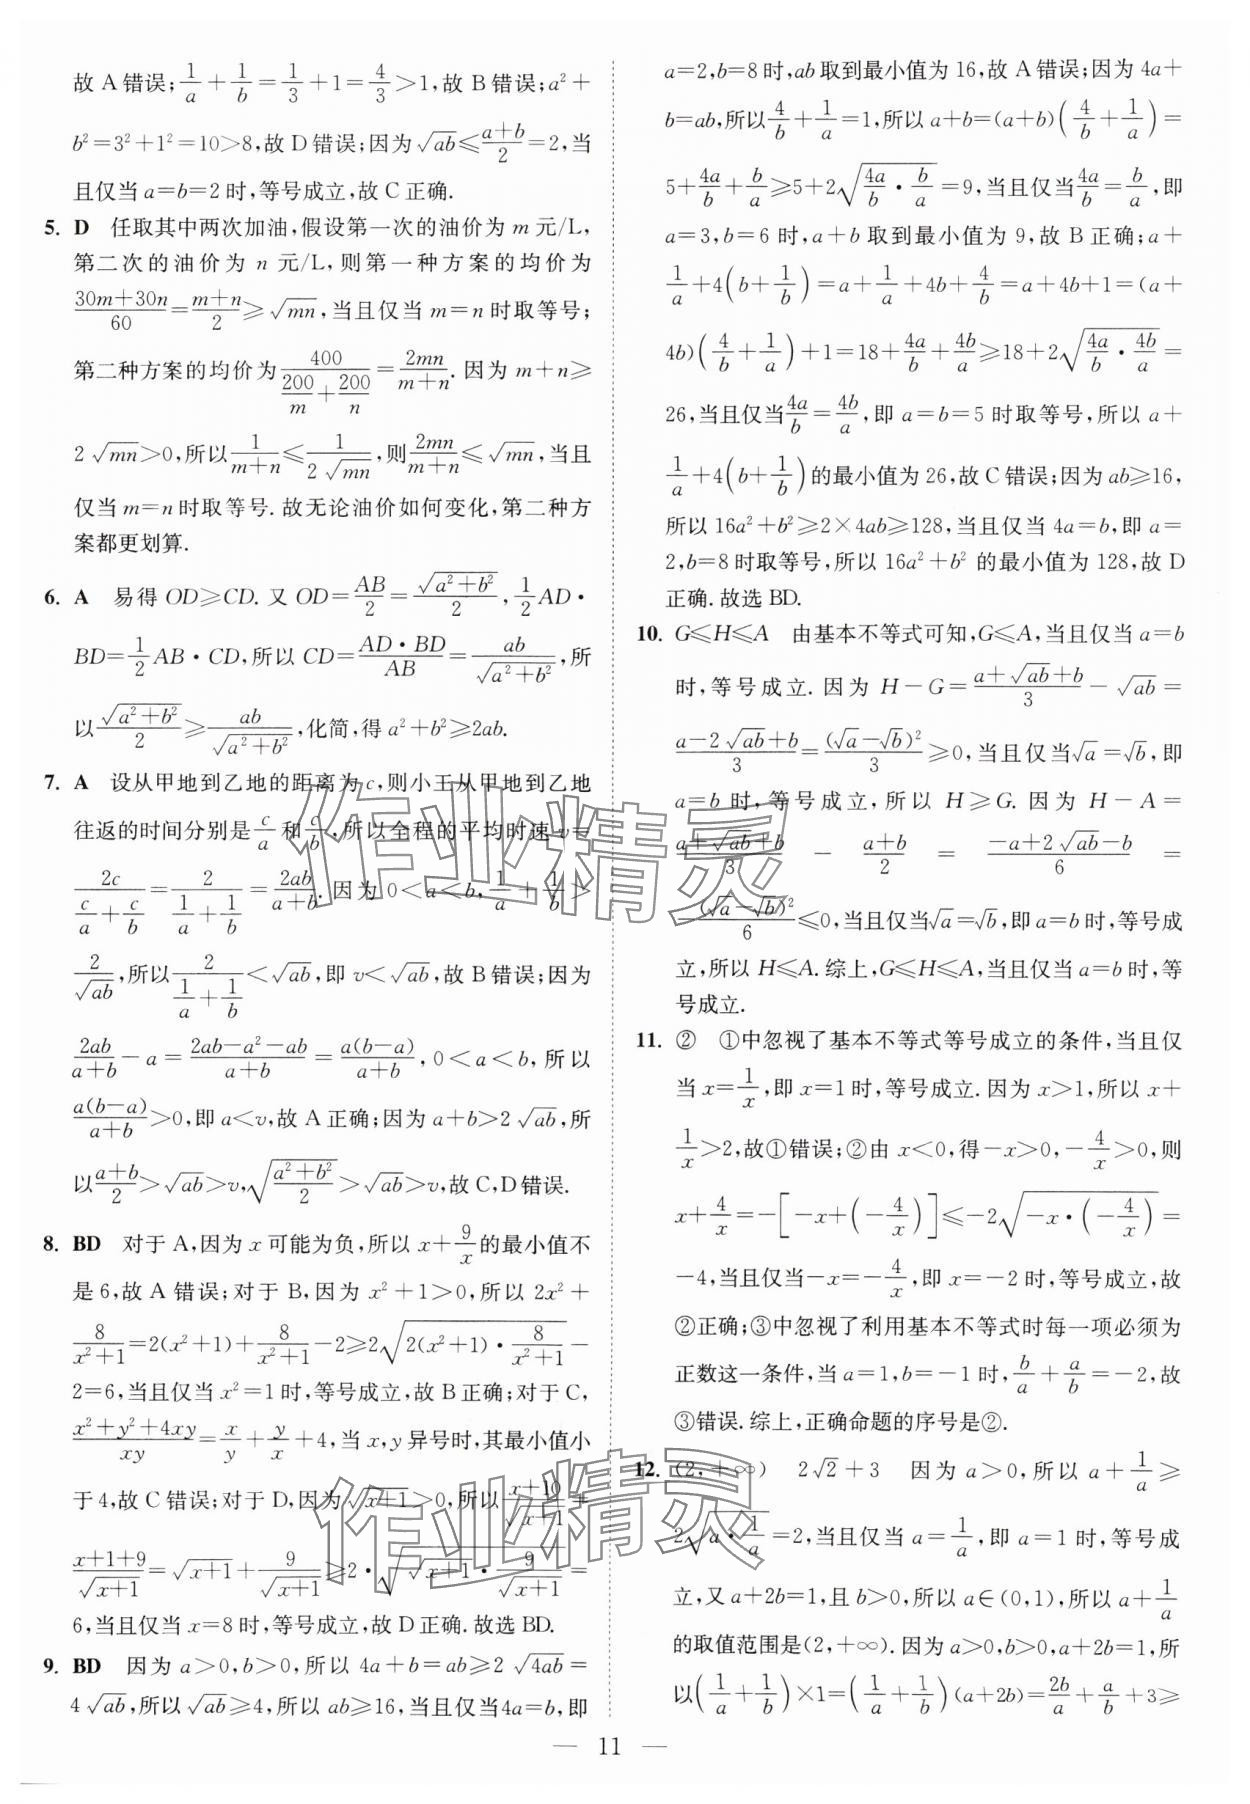 故 A 错误;$\frac{1}{a}+\frac{1}{b}=\frac{1}{3}+1=\frac{4}{3}>1$,故 B 错误;$a^2+$
$b^2=3^2+1^2=10>8$,故 D 错误;因为 $\sqrt{ab}\leqslant\frac{a+b}{2}=2$,当
且仅当 $a=b=2$ 时,等号成立,故 C 正确.
5. D 任取其中两次加油,假设第一次的油价为 m 元/L,
第二次的油价为 n 元/L,则第一种方案的均价为
$\frac{30m+30n}{60}=\frac{m+n}{2}\geqslant\sqrt{mn}$,当且仅当 $m=n$ 时取等号;
第二种方案的均价为$\frac{400}{\frac{200}{m}+\frac{200}{n}}=\frac{2mn}{m+n}$. 因为 $m+n\geqslant$
$2\sqrt{mn}>0$,所以$\frac{1}{m+n}\leqslant\frac{1}{2\sqrt{mn}}$,则$\frac{2mn}{m+n}\leqslant\sqrt{mn}$,当且
仅当 $m=n$ 时取等号. 故无论油价如何变化,第二种方
案都更划算.
6. A 易得 $OD\geqslant CD$. 又 $OD=\frac{AB}{2}=\frac{\sqrt{a^2+b^2}}{2}$,$\frac{1}{2}AD\cdot$
$BD=\frac{1}{2}AB\cdot CD$,所以 $CD=\frac{AD\cdot BD}{AB}=\frac{ab}{\sqrt{a^2+b^2}}$,所
以$\frac{\sqrt{a^2+b^2}}{2}\geqslant\frac{ab}{\sqrt{a^2+b^2}}$,化简,得 $a^2+b^2\geqslant 2ab$.
7. A 设从甲地到乙地的距离为 c,则小王从甲地到乙地
往返的时间分别是$\frac{c}{a}$和$\frac{c}{b}$,所以全程的平均时速 $v=$
$\frac{2c}{\frac{c}{a}+\frac{c}{b}}=\frac{2}{\frac{1}{a}+\frac{1}{b}}=\frac{2ab}{a+b}$. 因为 $0<a<b$,$\frac{1}{a}+\frac{1}{b}>$
$\frac{2}{\sqrt{ab}}$,所以$\frac{2}{\frac{1}{a}+\frac{1}{b}}<\sqrt{ab}$,即 $v<\sqrt{ab}$,故 B 错误;因为
$\frac{2ab}{a+b}-a=\frac{2ab-a^2-ab}{a+b}=\frac{a(b-a)}{a+b}$,$0<a<b$,所以
$\frac{a(b-a)}{a+b}>0$,即 $a<v$,故 A 正确;因为 $a+b>2\sqrt{ab}$,所
以$\frac{a+b}{2}>\sqrt{ab}>v$,$\sqrt{\frac{a^2+b^2}{2}}>\sqrt{ab}>v$,故 C,D 错误.
8. BD 对于 A,因为 x 可能为负,所以 $x+\frac{9}{x}$的最小值不
是 6,故 A 错误;对于 B,因为 $x^2+1>0$,所以 $2x^2+$
$\frac{8}{x^2+1}=2(x^2+1)+\frac{8}{x^2+1}-2\geqslant 2\sqrt{2(x^2+1)\cdot\frac{8}{x^2+1}}-$
$2=6$,当且仅当 $x^2=1$ 时,等号成立,故 B 正确;对于 C,
$\frac{x^2+y^2+4xy}{xy}=\frac{x}{y}+\frac{y}{x}+4$,当 x,y 异号时,其最小值小
于 4,故 C 错误;对于 D,因为$\sqrt{x+1}>0$,所以$\frac{x+10}{\sqrt{x+1}}=$
$\frac{x+1+9}{\sqrt{x+1}}=\sqrt{x+1}+\frac{9}{\sqrt{x+1}}\geqslant 2\cdot\sqrt{\sqrt{x+1}\cdot\frac{9}{\sqrt{x+1}}}=$
6,当且仅当 $x=8$ 时,等号成立,故 D 正确. 故选 BD.
9. BD 因为 $a>0,b>0$,所以 $4a+b=ab\geqslant 2\sqrt{4ab}=$
$4\sqrt{ab}$,所以$\sqrt{ab}\geqslant 4$,所以 $ab\geqslant 16$,当且仅当$4a=b$,即
$a=2,b=8$ 时,$ab$ 取到最小值为 16,故 A 错误;因为 $4a+$
$b=ab$,所以$\frac{4}{b}+\frac{1}{a}=1$,所以 $a+b=(a+b)\left(\frac{4}{b}+\frac{1}{a}\right)=$
$5+\frac{4a}{b}+\frac{b}{a}\geqslant 5+2\sqrt{\frac{4a}{b}\cdot\frac{b}{a}}=9$,当且仅当$\frac{4a}{b}=\frac{b}{a}$,即
$a=3,b=6$ 时,$a+b$ 取到最小值为 9,故 B 正确;$a+$
$\frac{1}{a}+4\left(b+\frac{1}{b}\right)=a+\frac{1}{a}+4b+\frac{4}{b}=a+4b+1=(a+$
$4b)\left(\frac{4}{b}+\frac{1}{a}\right)+1=18+\frac{4a}{b}+\frac{4b}{a}\geqslant 18+2\sqrt{\frac{4a}{b}\cdot\frac{4b}{a}}=$
26,当且仅当$\frac{4a}{b}=\frac{4b}{a}$,即 $a=b=5$ 时取等号,所以 $a+$
$\frac{1}{a}+4\left(b+\frac{1}{b}\right)$的最小值为 26,故 C 错误;因为 $ab\geqslant 16$,
所以 $16a^2+b^2\geqslant 2\times 4ab\geqslant 128$,当且仅当 $4a=b$,即 $a=$
$2,b=8$ 时取等号,所以 $16a^2+b^2$ 的最小值为 128,故 D
正确. 故选 BD.
10. $G\leqslant H\leqslant A$ 由基本不等式可知,$G\leqslant A$,当且仅当 $a=b$
时,等号成立. 因为 $H-G=\frac{a+\sqrt{ab}+b}{3}-\sqrt{ab}=$
$\frac{a-2\sqrt{ab}+b}{3}=\frac{(\sqrt{a}-\sqrt{b})^2}{3}\geqslant 0$,当且仅当$\sqrt{a}=\sqrt{b}$,即
$a=b$ 时,等号成立,所以 $H\geqslant G$. 因为 $H-A=$
$\frac{a+\sqrt{ab}+b}{3}-\frac{a+b}{2}=\frac{-a+2\sqrt{ab}-b}{6}=$
$-\frac{(\sqrt{a}-\sqrt{b})^2}{6}\leqslant 0$,当且仅当$\sqrt{a}=\sqrt{b}$,即 $a=b$ 时,等号成
立,所以 $H\leqslant A$. 综上,$G\leqslant H\leqslant A$,当且仅当 $a=b$ 时,等
号成立.
11. ② ①中忽视了基本不等式等号成立的条件,当且仅
当 $x=\frac{1}{x}$,即 $x=1$时,等号成立. 因为 $x>1$,所以 $x+$
$\frac{1}{x}>2$,故①错误;②由 $x<0$,得$-x>0$,$-\frac{4}{x}>0$,则
$x+\frac{4}{x}=-\left[-x+\left(-\frac{4}{x}\right)\right]\leqslant -2\sqrt{-x\cdot\left(-\frac{4}{x}\right)}=$
$-4$,当且仅当$-x=-\frac{4}{x}$,即 $x=-2$ 时,等号成立,故
②正确;③中忽视了利用基本不等式时每一项必须为
正数这一条件,当 $a=1,b=-1$ 时,$\frac{b}{a}+\frac{a}{b}=-2$,故
③错误. 综上,正确命题的序号是②.
12. $(2,+\infty)$ $2\sqrt{2}+3$ 因为 $a>0$,所以 $a+\frac{1}{a}\geqslant$
$2\sqrt{a\cdot\frac{1}{a}}=2$,当且仅当 $a=\frac{1}{a}$,即 $a=1$ 时,等号成
立,又 $a+2b=1$,且 $b>0$,所以 $a\in(0,1)$,所以 $a+\frac{1}{a}$
的取值范围是$(2,+\infty)$. 因为 $a>0,b>0,a+2b=1$,所
以$\left(\frac{1}{a}+\frac{1}{b}\right)\times 1=\left(\frac{1}{a}+\frac{1}{b}\right)(a+2b)=\frac{2b}{a}+\frac{a}{b}+3\geqslant$
— 11 —
作业精灵
作业精灵